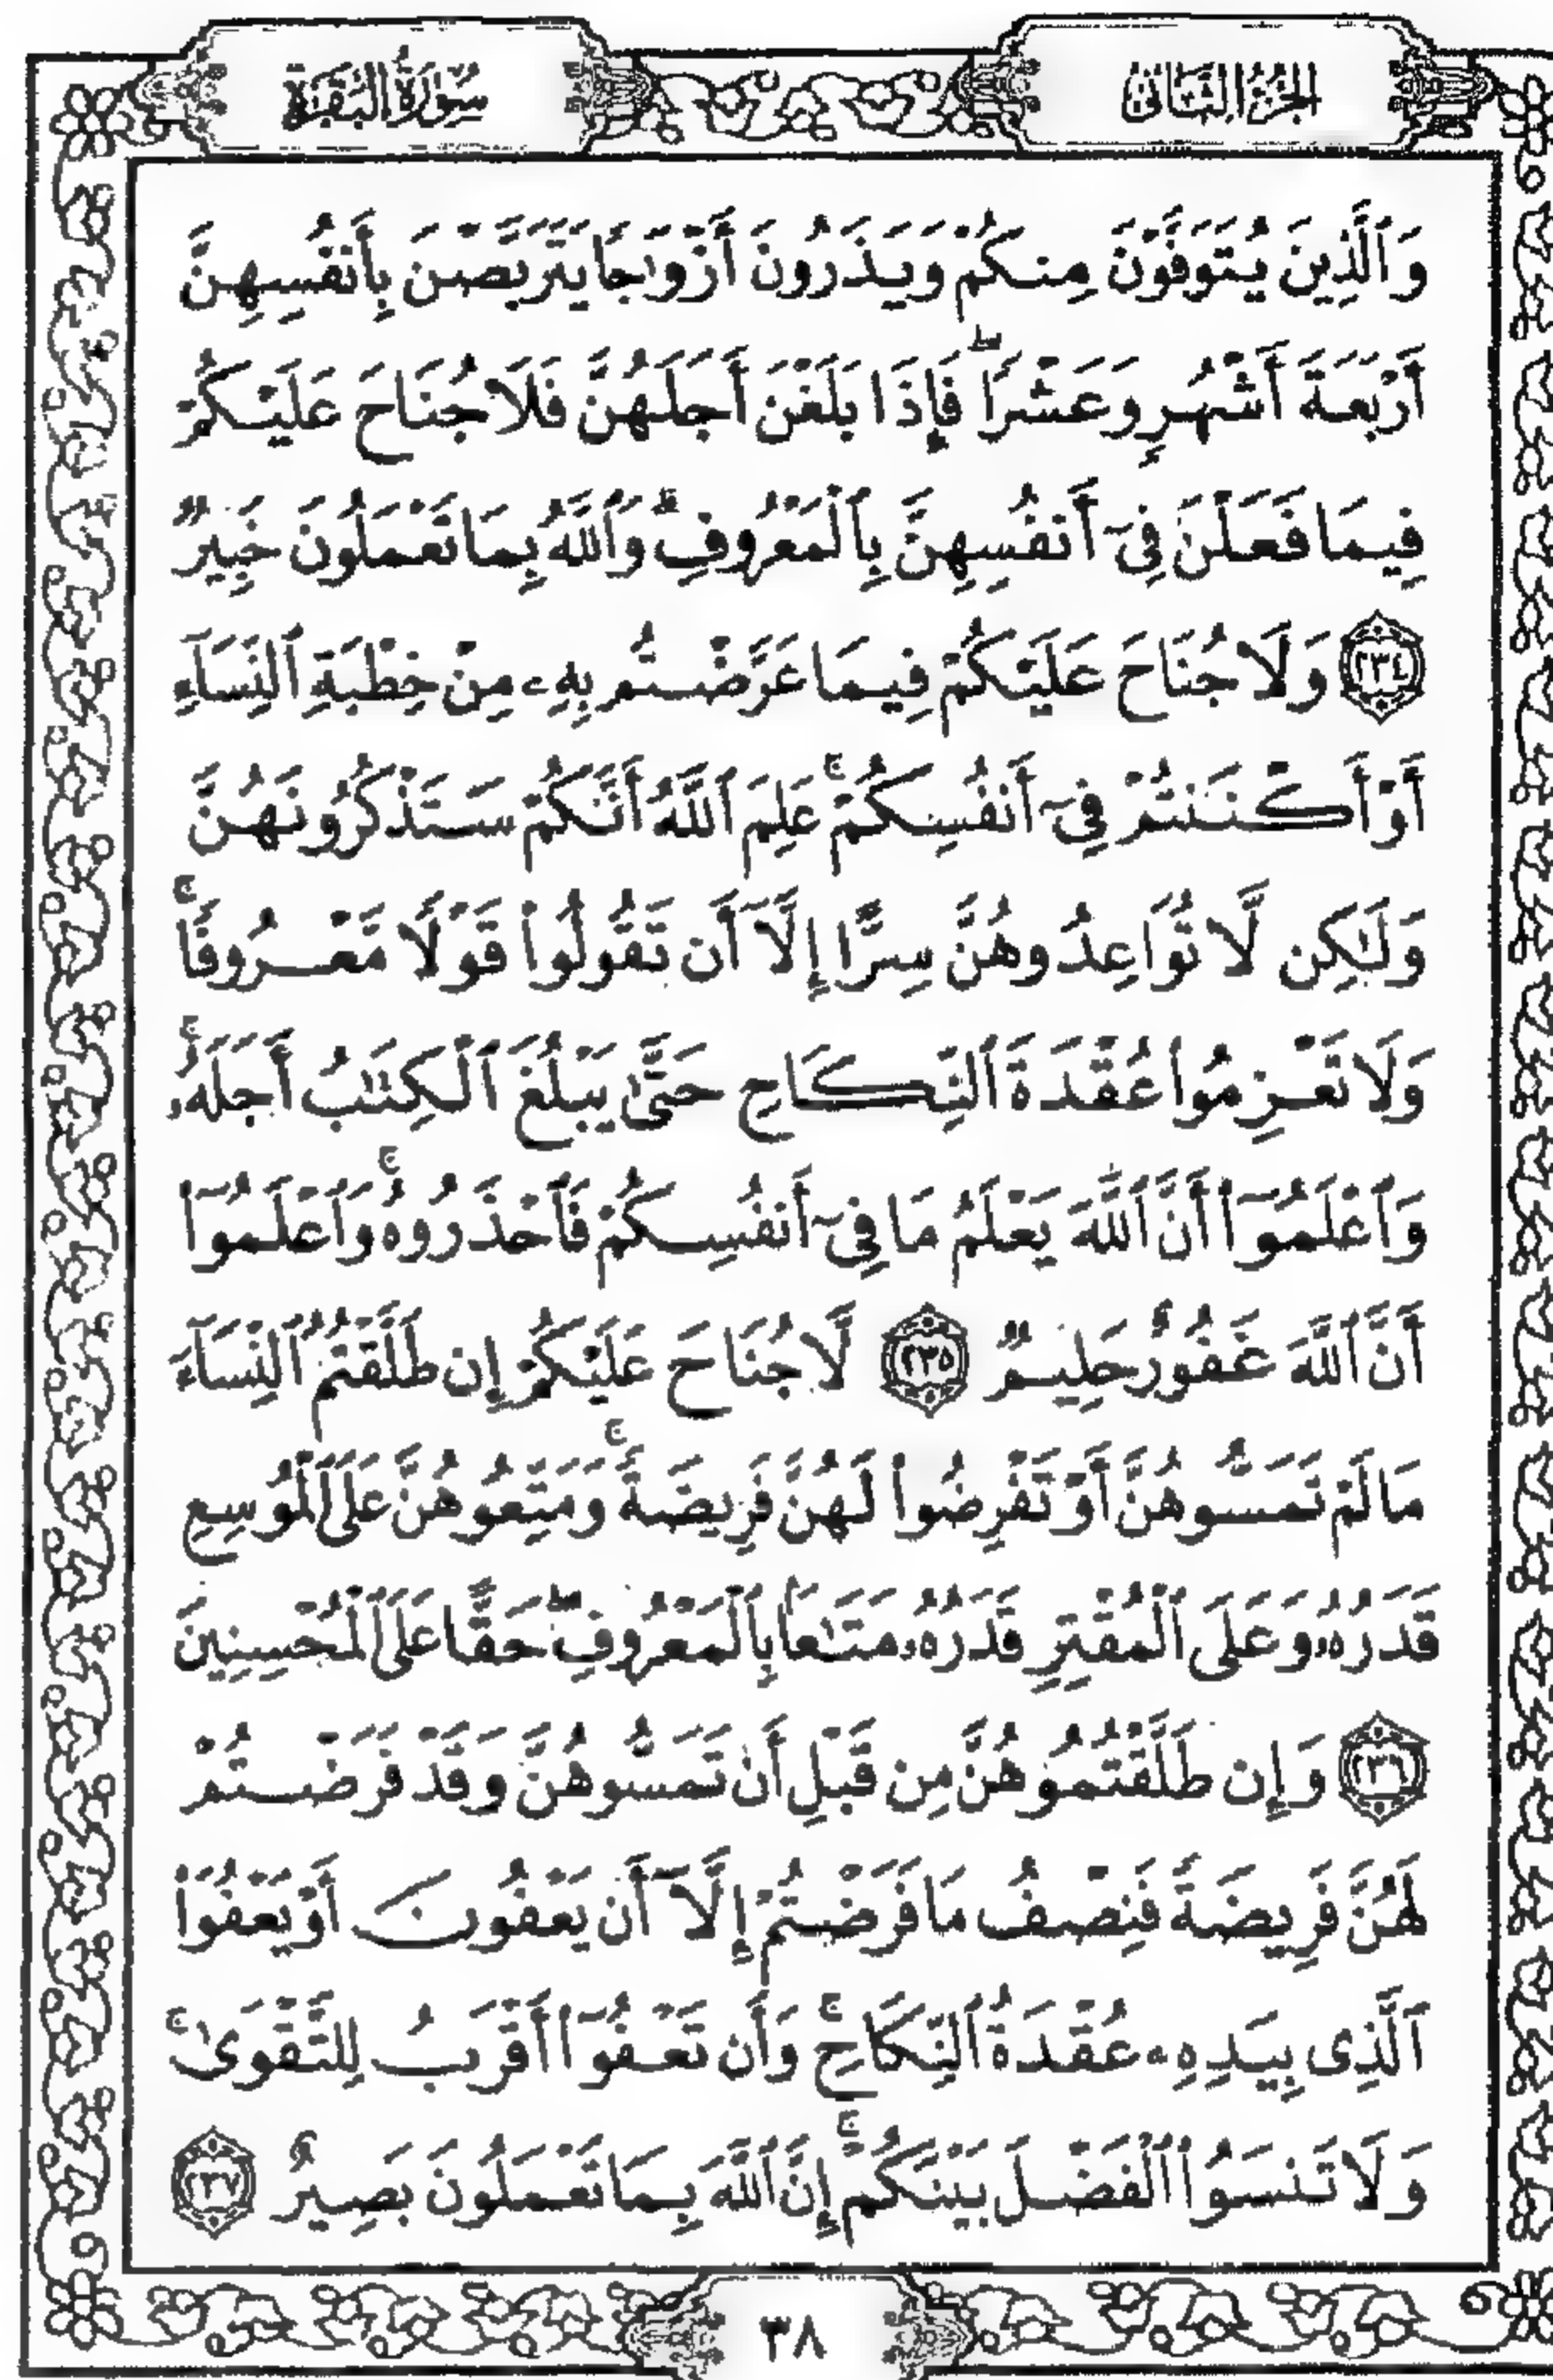 الجزء الثاني
سورة البقرة
وَٱلَّذِينَ يُتَوَفَّوْنَ مِنكُمْ وَيَذَرُونَ أَزْوَٰجًا يَتَرَبَّصْنَ بِأَنفُسِهِنَّ
أَرْبَعَةَ أَشْهُرٍ وَعَشْرًا ۖ فَإِذَا بَلَغْنَ أَجَلَهُنَّ فَلَا جُنَاحَ عَلَيْكُمْ
فِيمَا فَعَلْنَ فِىٓ أَنفُسِهِنَّ بِٱلْمَعْرُوفِ ۗ وَٱللَّهُ بِمَا تَعْمَلُونَ خَبِيرٌ
٢٣٤ وَلَا جُنَاحَ عَلَيْكُمْ فِيمَا عَرَّضْتُم بِهِۦ مِنْ خِطْبَةِ ٱلنِّسَآءِ
أَوْ أَكْنَنتُمْ فِىٓ أَنفُسِكُمْ ۚ عَلِمَ ٱللَّهُ أَنَّكُمْ سَتَذْكُرُونَهُنَّ
وَلَـٰكِن لَّا تُوَاعِدُوهُنَّ سِرًّا إِلَّآ أَن تَقُولُوا۟ قَوْلًا مَّعْرُوفًا ۚ
وَلَا تَعْزِمُوا۟ عُقْدَةَ ٱلنِّكَاحِ حَتَّىٰ يَبْلُغَ ٱلْكِتَـٰبُ أَجَلَهُۥ ۚ
وَٱعْلَمُوٓا۟ أَنَّ ٱللَّهَ يَعْلَمُ مَا فِىٓ أَنفُسِكُمْ فَٱحْذَرُوهُ ۚ وَٱعْلَمُوٓا۟
أَنَّ ٱللَّهَ غَفُورٌ حَلِيمٌ ٢٣٥ لَّا جُنَاحَ عَلَيْكُمْ إِن طَلَّقْتُمُ ٱلنِّسَآءَ
مَا لَمْ تَمَسُّوهُنَّ أَوْ تَفْرِضُوا۟ لَهُنَّ فَرِيضَةً ۚ وَمَتِّعُوهُنَّ عَلَى ٱلْمُوسِعِ
قَدَرُهُۥ وَعَلَى ٱلْمُقْتِرِ قَدَرُهُۥ مَتَـٰعًۢا بِٱلْمَعْرُوفِ ۖ حَقًّا عَلَى ٱلْمُحْسِنِينَ
٢٣٦ وَإِن طَلَّقْتُمُوهُنَّ مِن قَبْلِ أَن تَمَسُّوهُنَّ وَقَدْ فَرَضْتُمْ
لَهُنَّ فَرِيضَةً فَنِصْفُ مَا فَرَضْتُمْ إِلَّآ أَن يَعْفُونَ أَوْ يَعْفُوَا۟
ٱلَّذِى بِيَدِهِۦ عُقْدَةُ ٱلنِّكَاحِ ۚ وَأَن تَعْفُوٓا۟ أَقْرَبُ لِلتَّقْوَىٰ ۚ
وَلَا تَنسَوُا۟ ٱلْفَضْلَ بَيْنَكُمْ ۚ إِنَّ ٱللَّهَ بِمَا تَعْمَلُونَ بَصِيرٌ ٢٣٧
٣٨